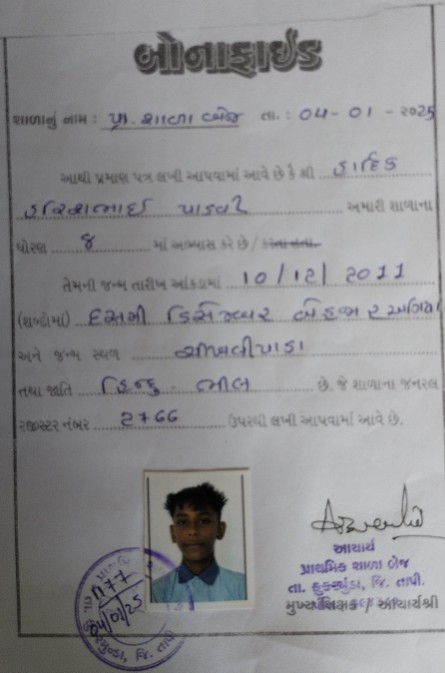 બોનાફાઈડ
શાળાનું નામ : પ્રા. શાળા બેજ તા. : 04 - 01 - 2025
આથી પ્રમાણ પત્ર લખી આપવામાં આવે છે કે શ્રી હાર્દિક
પાડવી અમારી શાળાના
ધોરણ ૪ માં અભ્યાસ કરે છે / કરતા હતા.
તેમની જન્મ તારીખ આંકડામાં 10 / 12 / 2011
(શબ્દોમાં) દસમી ડિસેમ્બર બે હજાર અગિયાર
અને જન્મ સ્થળ ચીખલીપાડા
તથા જાતિ હિન્દુ - ભીલ છે. જે શાળાના જનરલ
રજીસ્ટર નંબર 2766 ઉપરથી લખી આપવામાં આવે છે.
આચાર્ય
પ્રાથમિક શાળા બેજ
તા. કુકરમુંડા, જિ. તાપી.
મુખ્ય શિક્ષક / આચાર્યશ્રી
177
04/01/25
જિ. તાપી